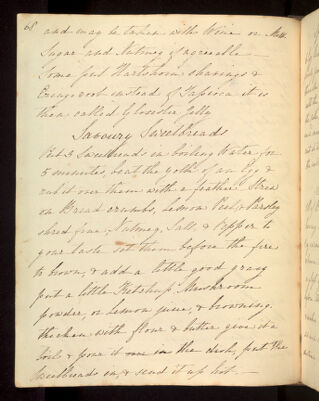 68
and may be taken with Wine or Milk
Sugar and Nutmeg if agreeable —
Some put Hartshorn shavings &
Eringo root instead of Tapioca it is
then called Glocester Jelly
Savoury Sweetbreads
Put 3 Sweetbreads in boiling Water for
5 minutes, beat the yolk of an Egg &
rub it over them with a feather Strew
on Bread crumbs, Lemon Peel & Parsley
shred fine, Nutmeg, Salt & Pepper to
your taste set them before the fire
to brown, & add a little good gravy
put a little Ketchup, Mushroom
powder, or Lemon juice, & browning.
thicken with flour & butter give it a
boil & pour it in the dish, put the
Sweetbreads in, & send it up hot. —